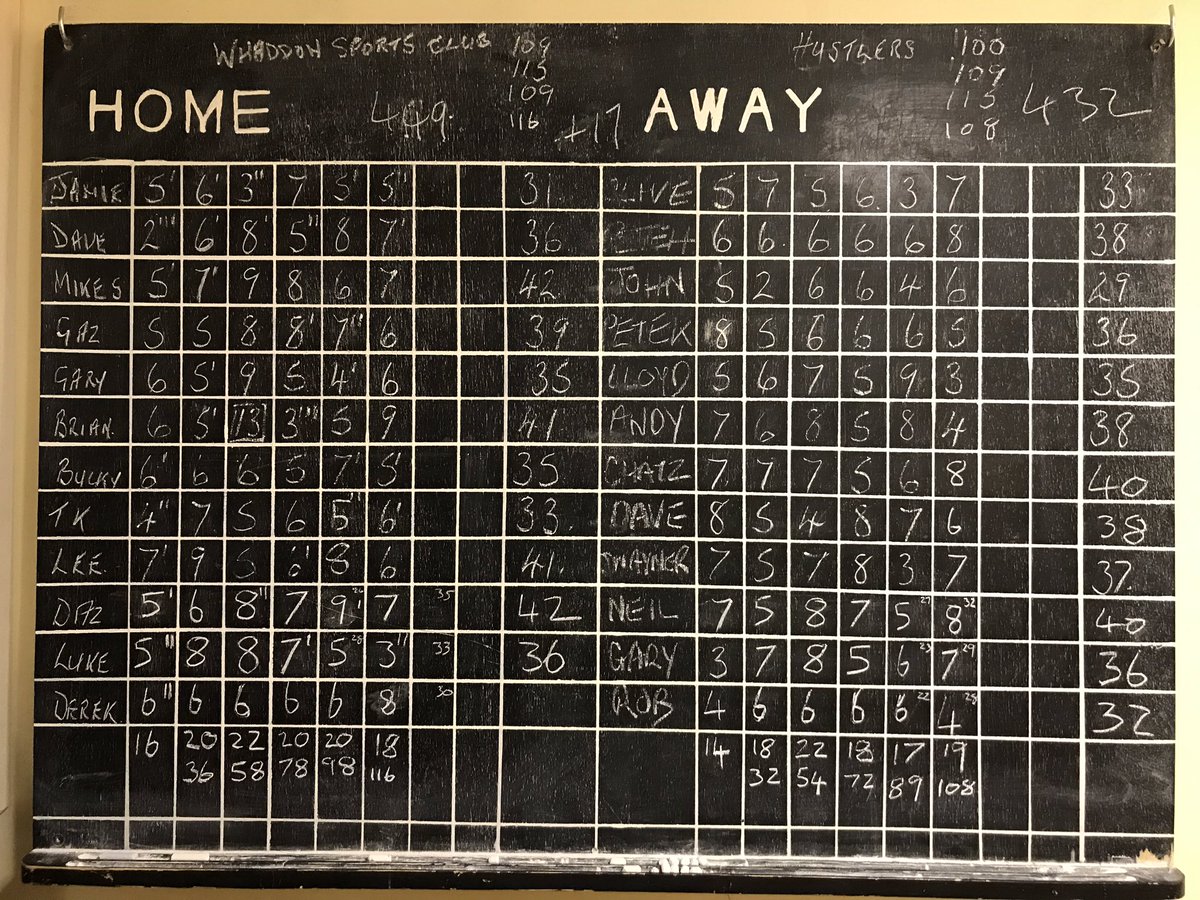 WHADDON SPORTS CLUB 109 HUSTLERS 100
115 109
109 115
116 108
HOME 449 +17 AWAY 432
JAMIE 5' 6' 3" 7 5' 5" 31 CLIVE 5 7 5 6 3 7 33
DAVE 2"" 6' 8' 5"' 8 7' 36 6 6 6 6 6 8 38
MIKES 5' 7' 9 8 6 7 42 JOHN 5 2 6 6 4 6 29
GAZ 5 5 8 8' 7" 6 39 PETEK 8 5 6 6 6 5 36
GARY 6 5' 9 5 4' 6 35 LLOYD 5 6 7 5 9 3 35
BRIAN 6 5' 13 3"" 5 9 41 ANDY 7 6 8 5 8 4 38
BUCKY 6' 6 6 5 7' 5' 35 CHATZ 7 7 7 5 6 8 40
TK 4" 7 5 6 5" 6' 33 DAVE 8 5 4 8 7 6 38
LEE 7' 9 5 6' 8 6 41 7 5 7 8 3 7 37
DAZ 5' 6 8" 7 9' 26 7 35 42 NEIL 7 5 8 7 5 27 8 32 40
LUKE 5" 8 8 7' 5 28 3" 33 36 GARY 3 7 8 5 6 23 7 29 36
DEREK 6" 6 6 6 6 8 30 ROB 4 6 6 6 6 22 4 28 32
16 20 22 20 20 18 14 18 22 18 17 19
36 58 78 98 116 32 54 72 89 108